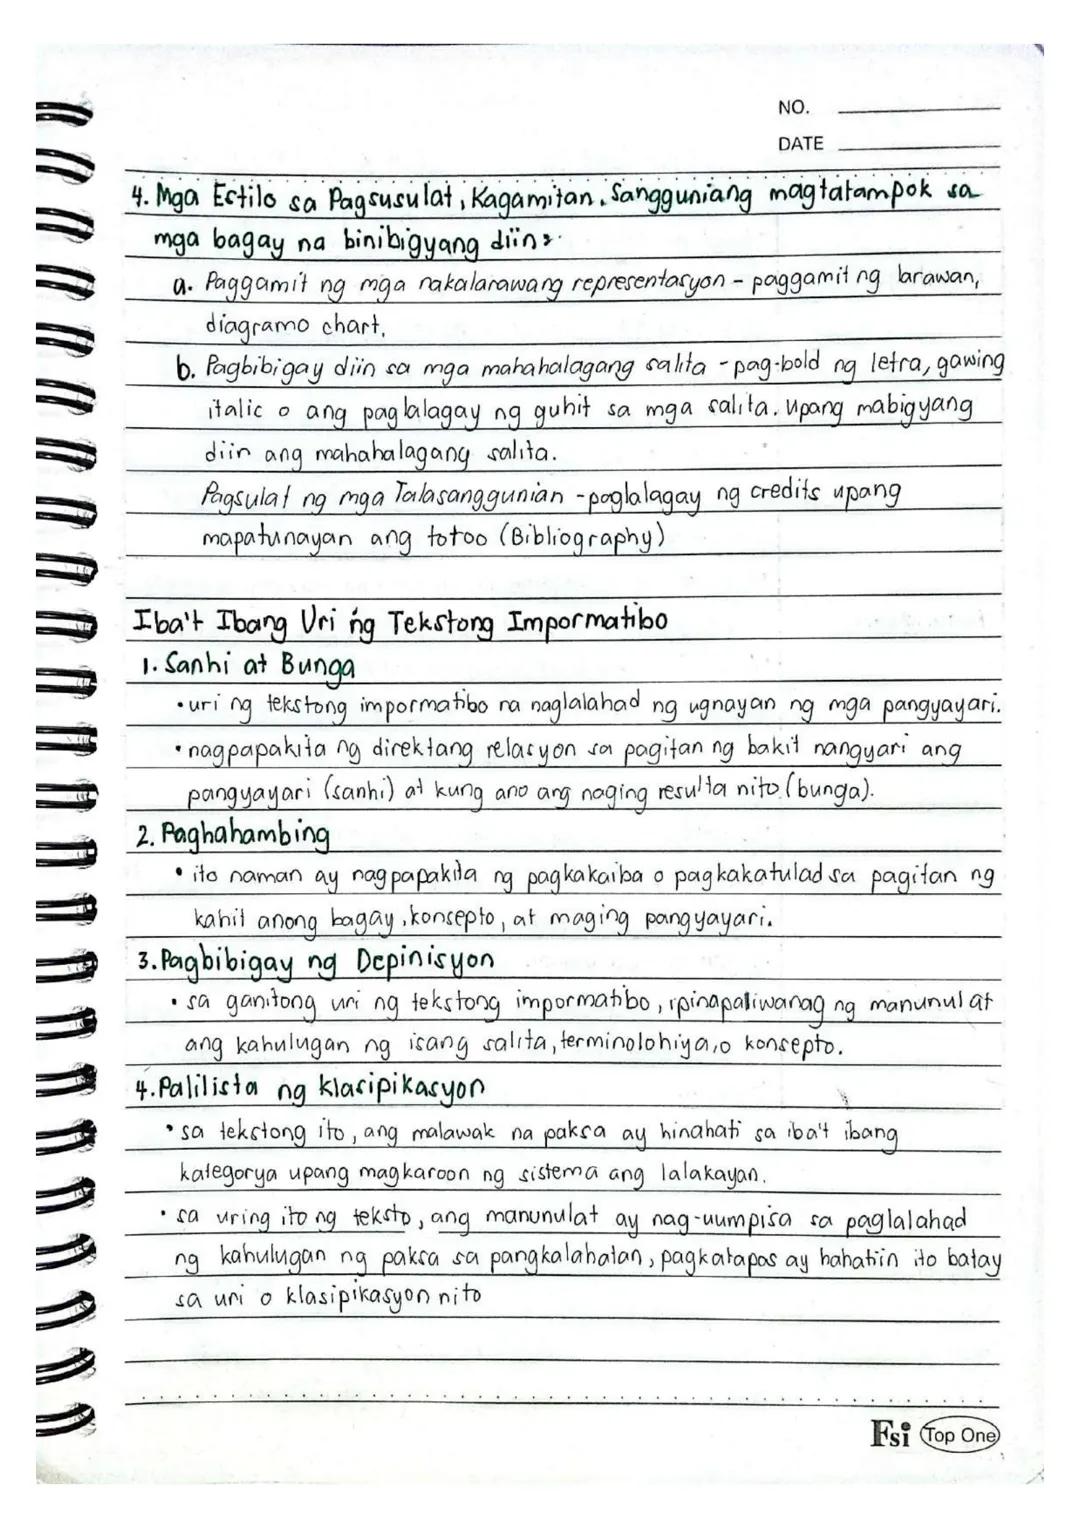 NO.
DATE
4. Mga Estilo sa Pagsusulat, Kagamitan, Sangguniang magtatampok sa
mga bagay na binibigyang diin:
a. Paggamit ng mga nakalarawang representasyon - paggamit ng larawan,
diagramo chart,
b. Pagbibigay diin sa mga mahahalagang salita - pag-bold ng letra, gawing
italic o ang paglalagay ng guhit sa mga salita. Upang mabigyang
diin ang mahahalagang salita.
Pagsulat ng mga Talasanggunian - paglalagay ng credits upang
mapatunayan ang totoo (Bibliography)
Iba't Ibang Uri ng Tekstong Impormatibo
1. Sanhi at Bunga
• uri ng tekstong impormatibo na naglalahad ng ugnayan ng mga pangyayari.
• nagpapakita ng direktang relasyon sa pagitan ng bakit nangyari ang
pangyayari (sanhi) at kung ano ang naging resulta nito (bunga).
2. Paghahambing
• ito naman ay nagpapakita ng pagkakaiba o pagkakatulad sa pagitan ng
kahit anong bagay, konsepto, at maging pangyayari.
3. Pagbibigay ng Depinisyon
• sa ganitong uri ng tekstong impormatibo, ipinapaliwanag ng manunulat
ang kahulugan ng isang salita, terminolohiya, o konsepto.
4. Palilista ng klasipikasyon
• sa tekstong ito, ang malawak na paksa ay hinahati sa iba't ibang
kategorya upang magkaroon ng sistema ang lalakayan.
• sa uring ito ng teksto, ang manunulat ay nag-uumpisa sa paglalahad
ng kahulugan ng paksa sa pangkalahatan, pagkatapos ay hahatiin ito batay
sa uri o klasipikasyon nito
Fsi Top One